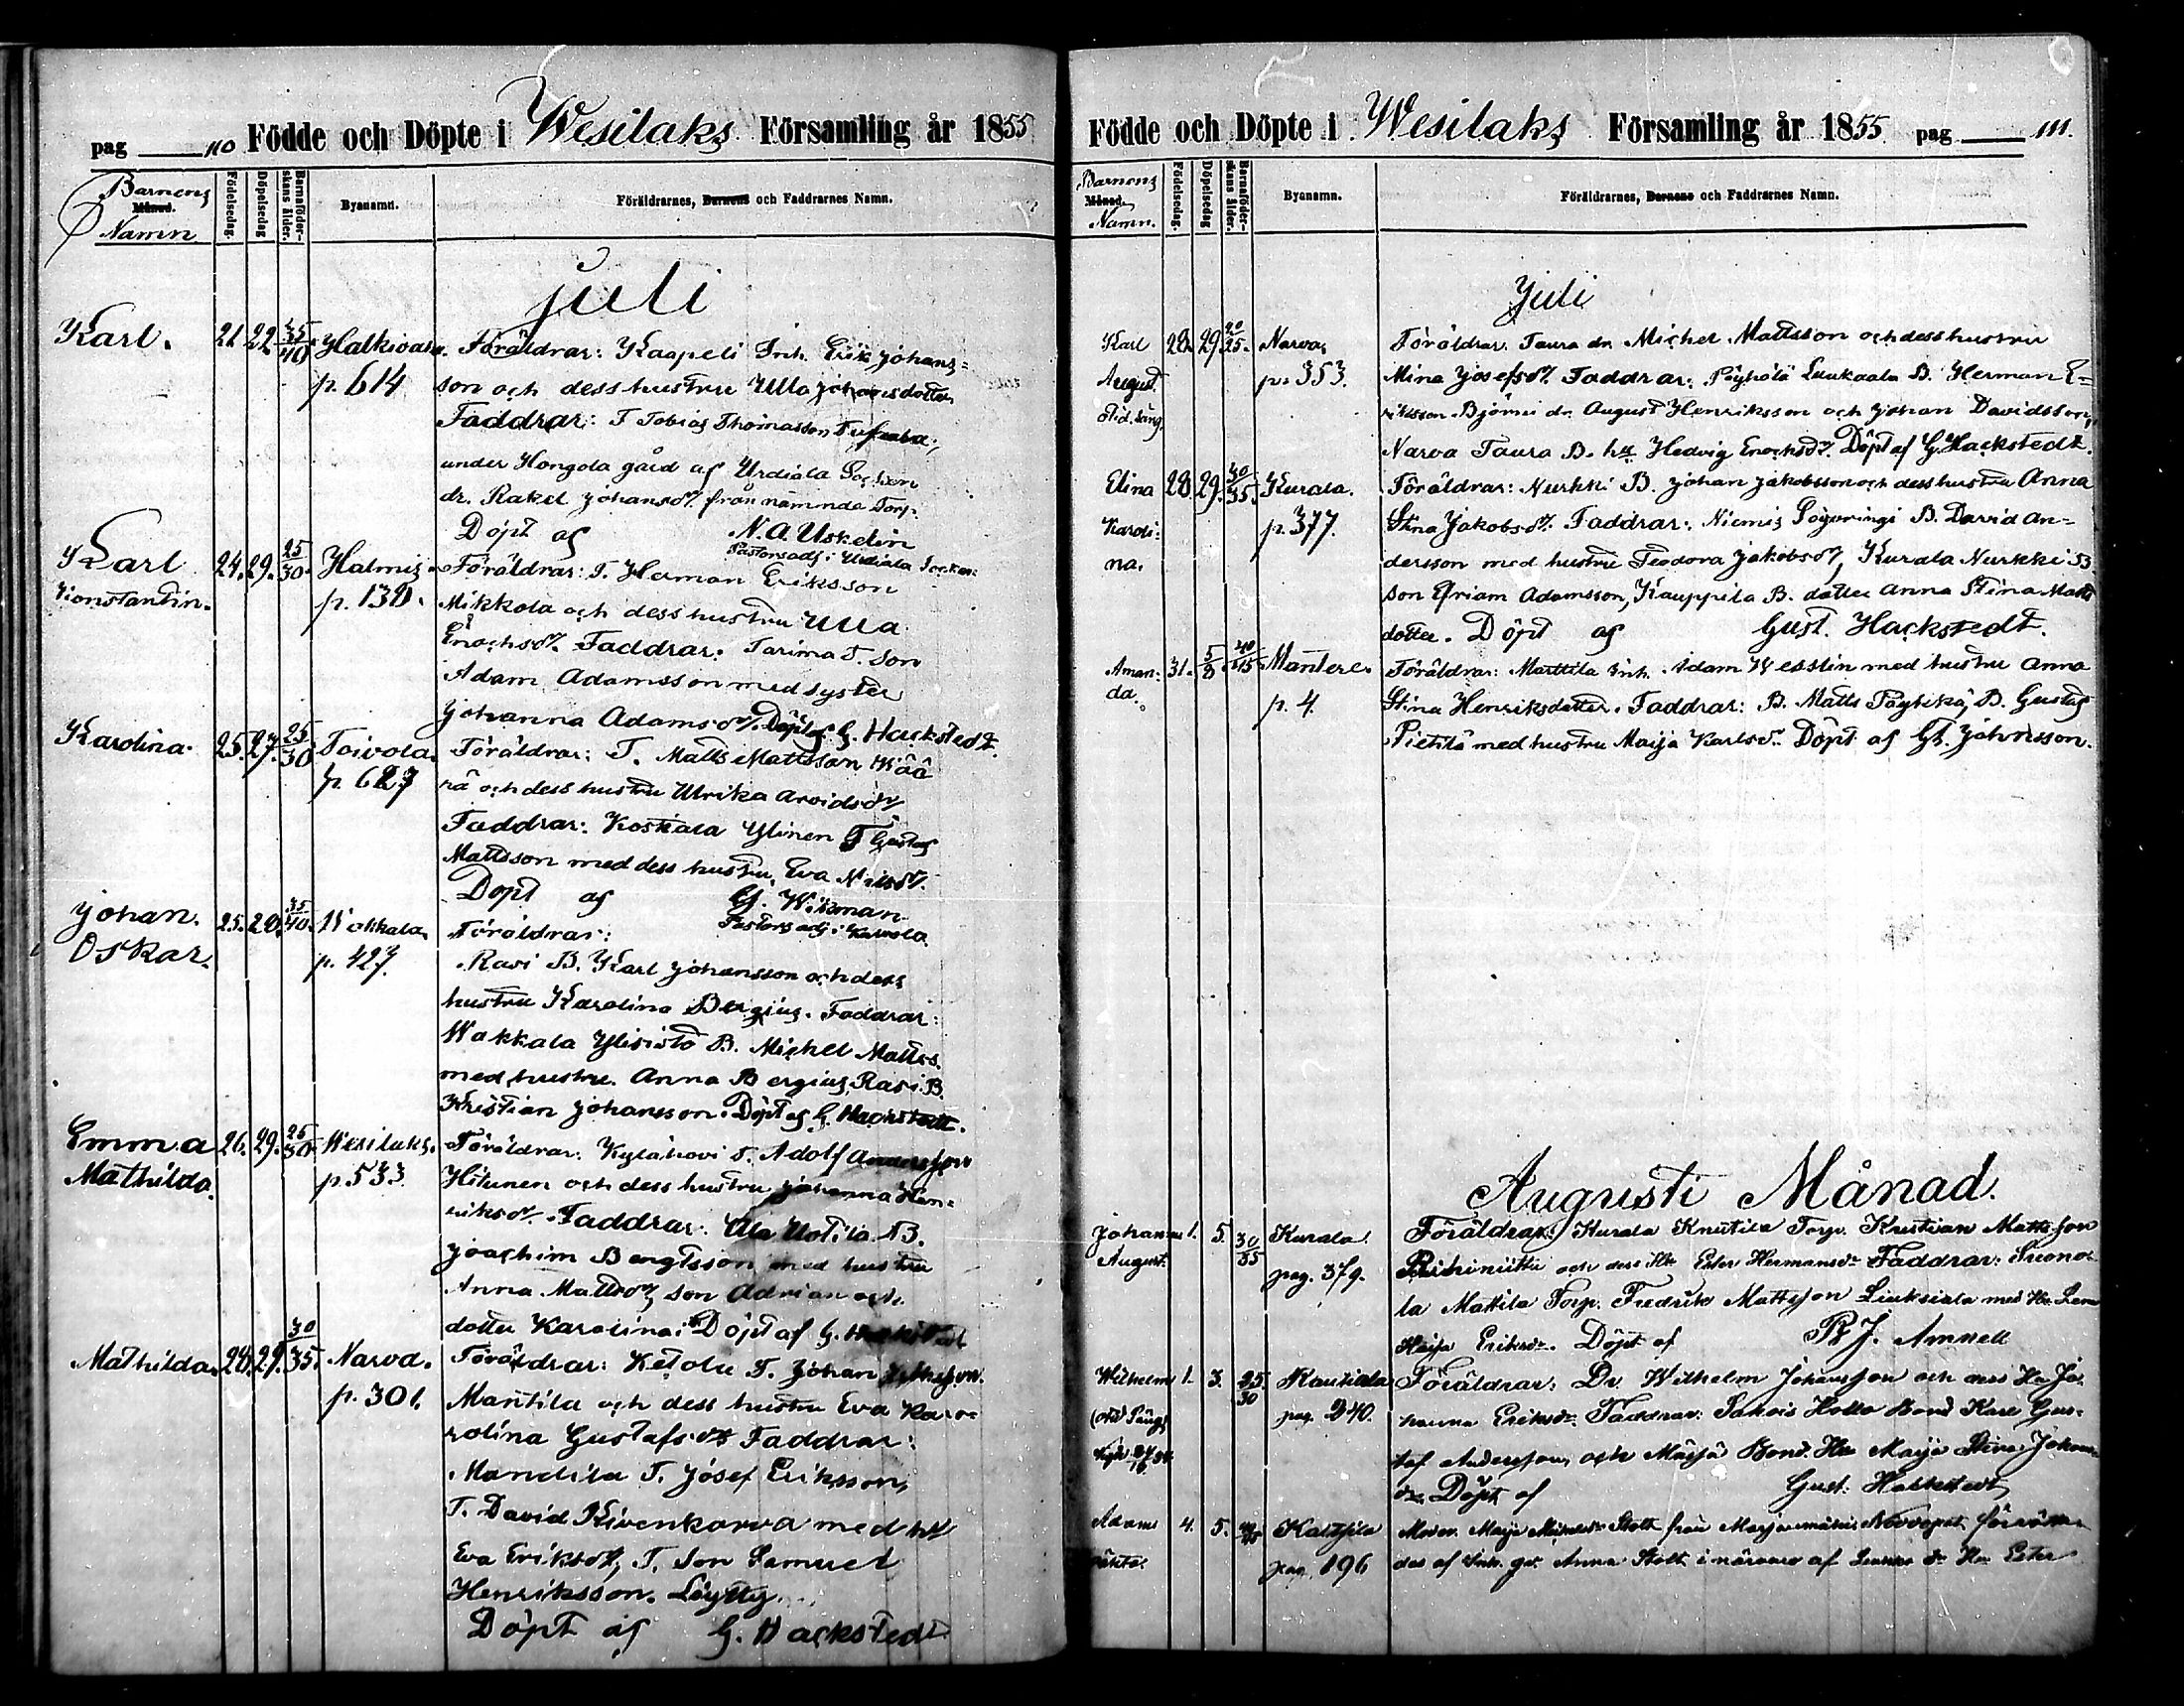 pag 110 Födde och Döpte i Wesilaks Församling år 1855
Barnens
Månad.
Namn
Födelsedag.
Döpelsedag
Barnaföder-
skans ålder.
Byanamn.
Föräldrarnes, Barnens och Faddrarnes Namn.
juli
Karl. 21 22 35/40 Halkivaa. Föräldrar: Kaapeli Inh. Erik Johans=
p. 614 son och dess hustru Ulla Johansdotter
Faddrar: T Tobias Thomasson
under Hongola gård af Urdiala Socken
dr. Rakel Johansd/. från nämnde Torp.
Döpt af N. A. Uskelin
Pastorsadj. i Urdiala Socken
Karl 24. 29. 25/30. Halmis. Föräldrar: T. Herman Eriksson
Konstantin. p. 138. Mikkola och dess hustru Ulla
Enochsd/. Faddrar: Tarima T. Son
Adam Adamsson med syster
Johanna Adamsd/. Döpt af G. Hackstedt.
Karolina. 25. 27. 25/30 Toivola. Föräldrar: T. Matts Mattsson Wää
p. 627 rä och dess hustru Ulrika Arvidsd/
Faddrar: Koskiala Ylinen T Gustaf
Mattsson med dess hustru Eva Nilsd/.
Döpt af G. Wikman
Pastors adj. i Karkola
Johan. 25. 28. 35/40. Wakkala. Föräldrar:
Oskar. p. 427. Rasi B. Karl Johansson och dess
hustru Karolina Bergius. Faddrar:
Wakkala Ylisisto B. Michel Matts.
med hustru. Anna Bergius, Rasi B.
Kristian Johansson. Döpt af G. Hackstedt.
Emma 26. 29. 25/30 Wesilaks. Föräldrar: Kylähovi T. Adolf Andersson
Mathilda. p. 533 Hitunen och dess hustru Johanna Hen=
riksd/. Faddrar: Ala Uotila B.
Joachim Bengtsson med hustru
Anna Mattsd/, son Adrian och
dotter Karolina. Döpt af G. Hackstedt
Mathilda. 28. 29. 30/35. Narva. Föräldrar: Ketola T. Johan
p. 301. Mantila och dess hustru Eva Ka=
rolina Gustafsd/ Faddrar:
Mandila T. Josef Eriksson,
T. David Kivenkorva med h/
Eva Eriksd/, T. Son Samuel
Henriksson. Löytty.
Döpt af G. Hackstedt.
Födde och Döpte i Wesilaks Församling år 1855 pag 111.
Barnens
Månad.
Namn.
Födelsedag.
Döpelsedag
Barnaföder-
skans ålder.
Byanamn.
Föräldrarnes, Barnens och Faddrarnes Namn.
Juli
Karl 28. 29 20/25. Narva, Föräldrar. Taura dr. Michel Mattsson och dess hustru
August. p. 353. Mina Josefsd/. Faddrar: Pöyhölä Luukaala B. Herman E=
oid. säng riksson. Björni dr. August Henriksson och Johan Davidsson,
Narva Taura B. hu Hedvig Enocksd/. Döpt af G. Hackstedt.
Elina 28. 29. 30/35. Kurala. Föräldrar: Nurkki B. Johan Jakobsson och dess hustru Anna
Karoli= p. 377. Stina Jakobsd/. Faddrar: Niemis B. David An=
na. dersson med hustru Teodora Jakobsd/, Kurala Nurkki B
son Efriam Adamsson, Kauppila B. dotter Anna Stina Matts
dotter. Döpt af Gust. Hackstedt.
Aman= 31. 5/8. 40/45 Mantere. Föräldrar: Marttila Inh. Adam Wesslin med hustru Anna
da. p. 4. Stina Henriksdotter. Faddrar: B. Matts Pöyhikä, B. Gustaf
Pietilä med hustru Maija Karlsd. Döpt af G. Johnsson.
Augusti Månad.
Johannes 1. 5. 30/35 Kurala. Föräldrar: Kurala Knutila Torp. Kristian Mattsson
August. pag. 379. Riihiniittu och dess Hu Ester Hermansdr Faddrar:
la Mattila Torp. Fredrik Mattsson Liuksiala med Hu
Maija Eriksdr. Döpt af B. J. Amnell
Wilhelm 1. 3. 25/30 Rautiala Föräldrar: Dr. Wilhelm Johansson och dess Hu Jo=
(oid säng) pag. 240. hanna Eriksdr. Faddrar. Sakois Hollo Bond Karl Gus=
taf Andersson, och Bond. Hu Maija Stina Johans
dr. Döpt af Gust. Hackstedt
Adam 4. 5. Kaltsila Moder. Maija Stolt från
oäkta. pag. 196 des af Inh. gr. Anna Stolt i närvaro af Hu Ester